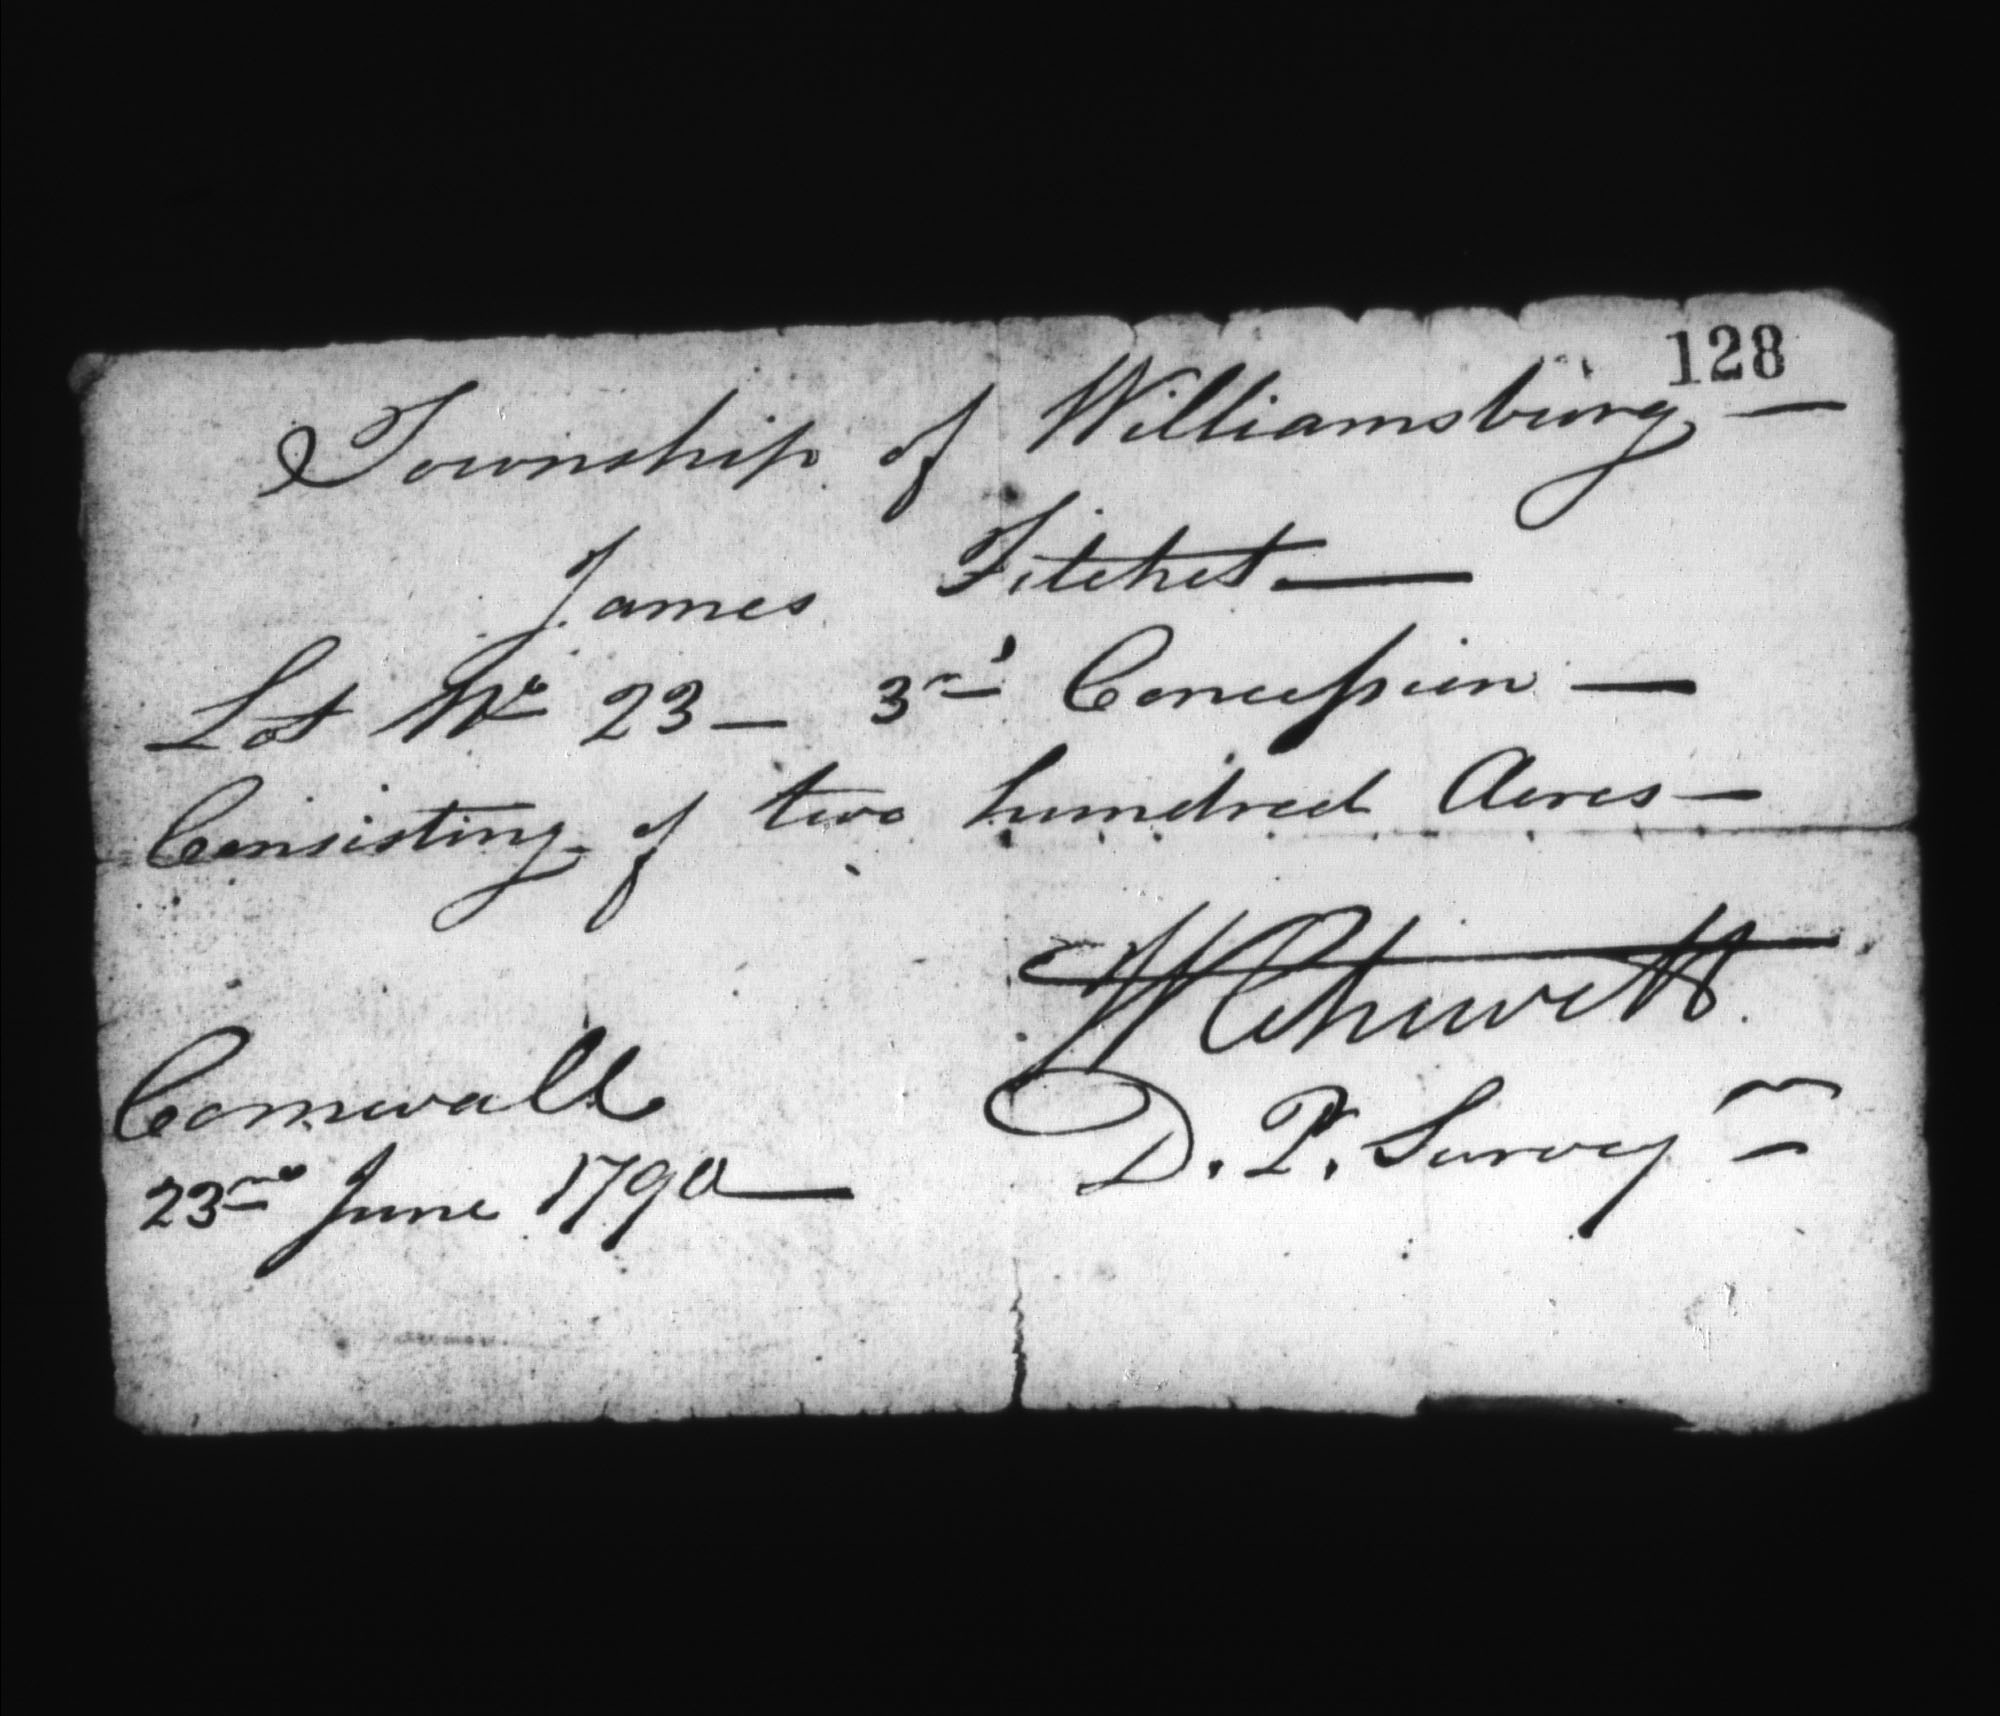 128
Township of Williamsburg —
James Fitchet. —
Lot No 23 — 3rd Concession —
Consisting of two hundred Acres —
WChewett.
Cornwall
D. P. Surveyr
23rd June 1790 —